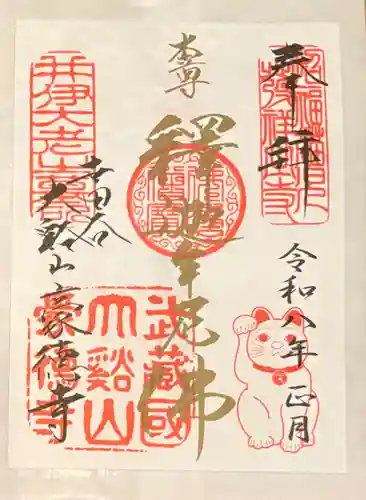 奉拝
令和八年 正月
本尊
釋迦牟尼佛
世田谷
大谿山豪徳寺
招福発祥
井伊大老
武蔵國
大谿山
豪徳寺